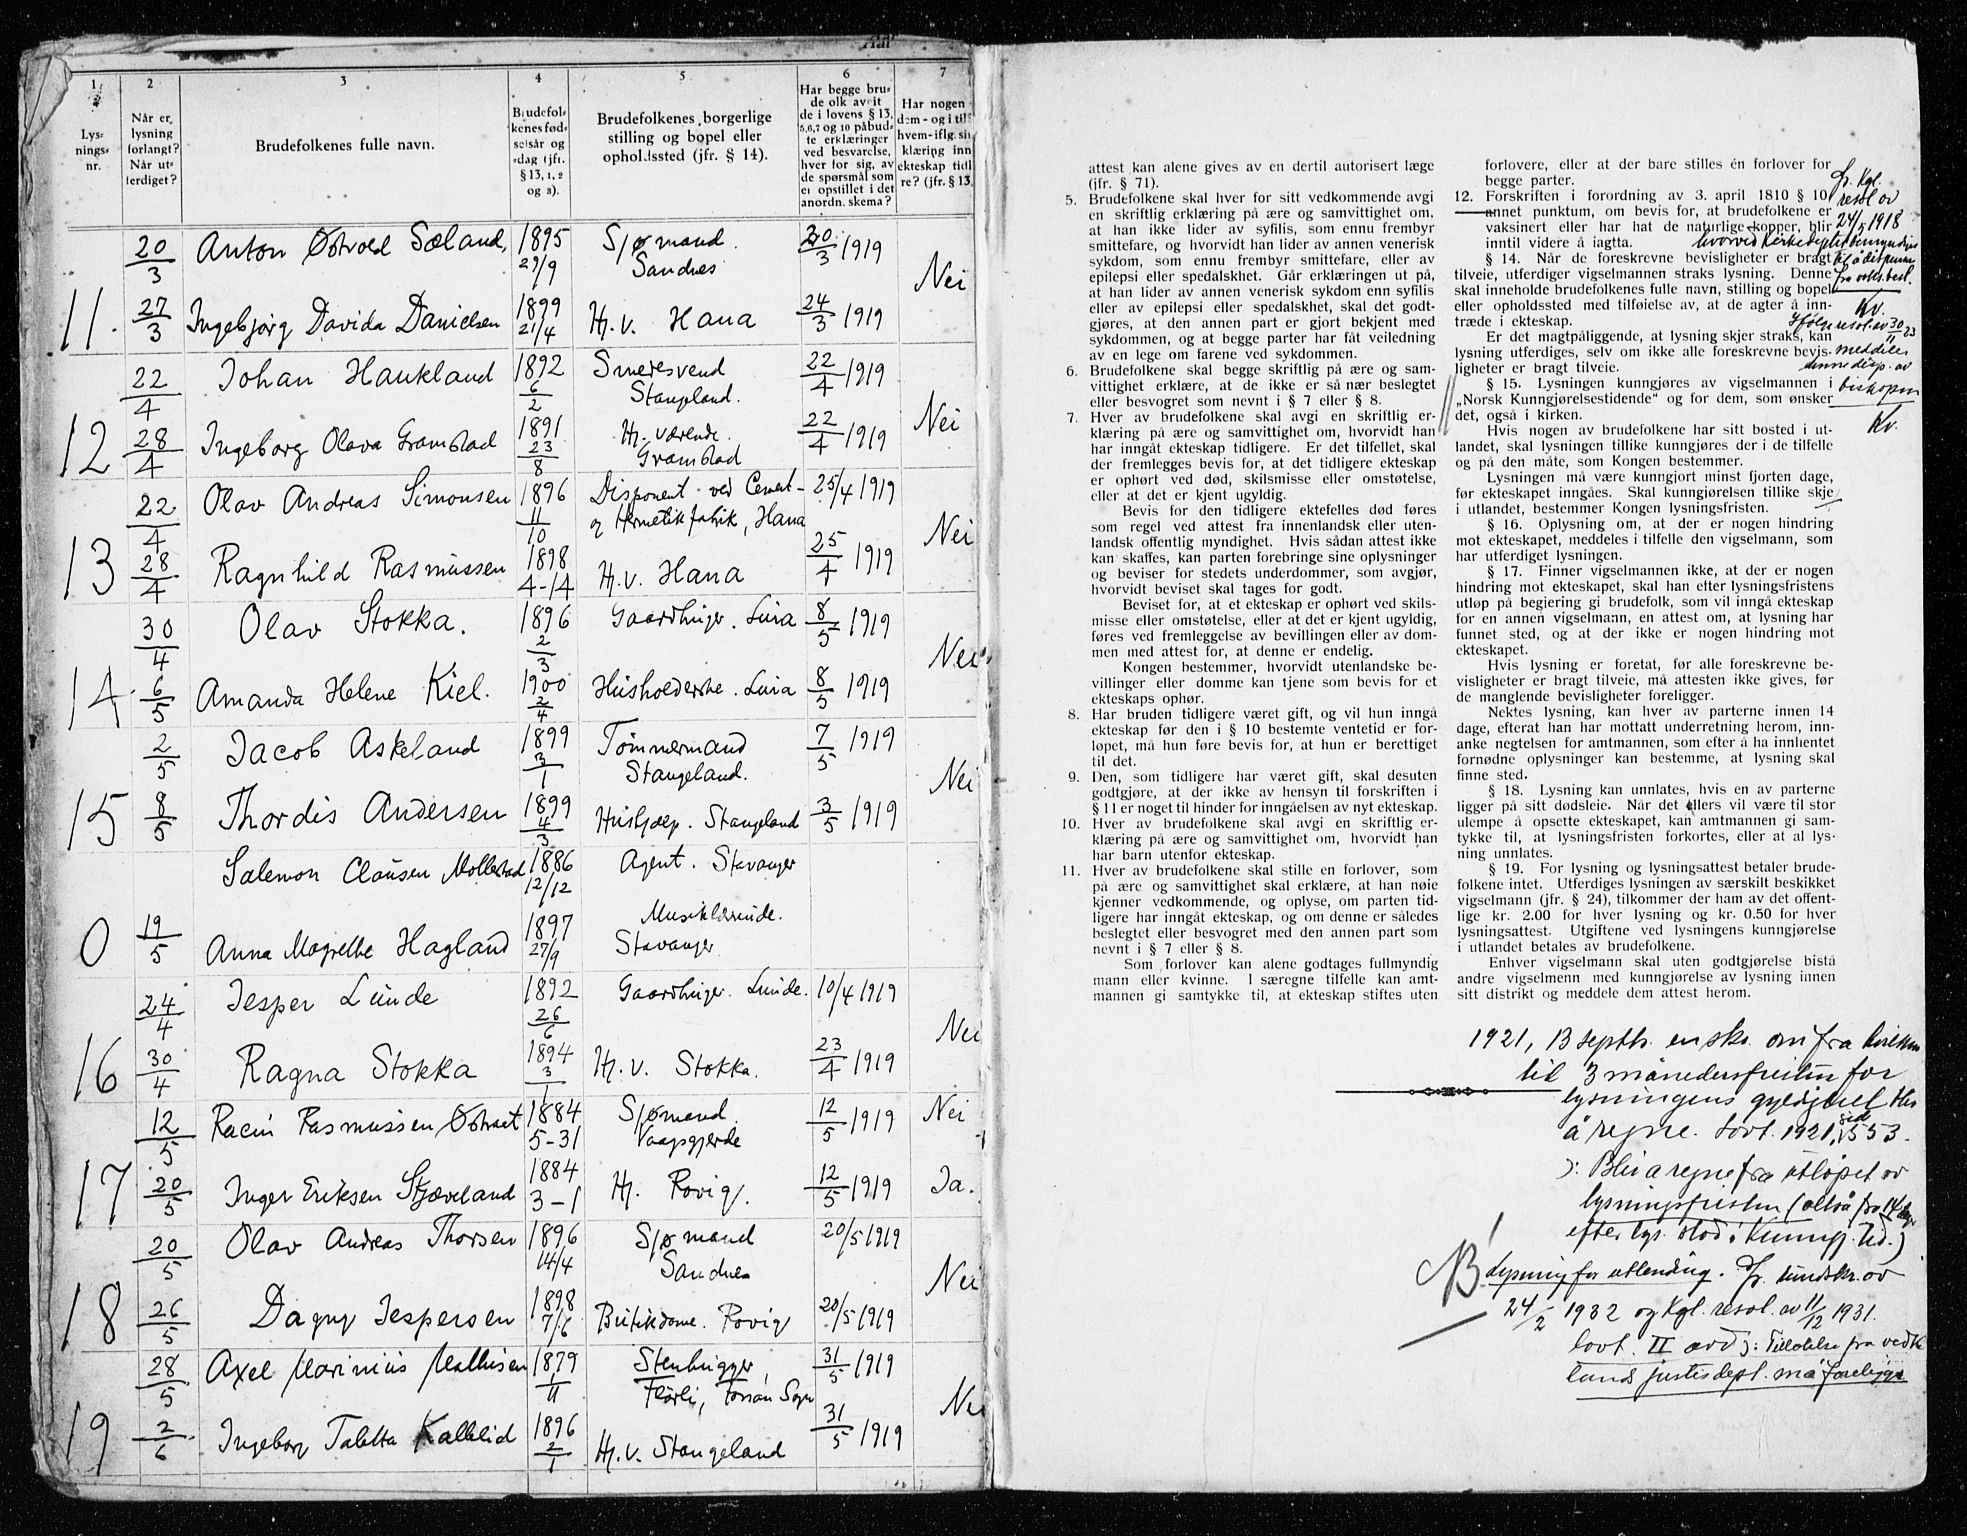 Aar
1
2
3
4
5
6
7
Lys-
nings-
nr.
Når er
lysning
forlangt?
Når ut-
ferdiget?
Brudefolkenes fulle navn.
Brudefol-
kenes fød-
selsår og
-dag (jfr.
§ 13, 1, 2
og 3).
Brudefolkenes borgerlige
stilling og bopel eller
opholdssted (jfr. § 14).
Har begge bru-
de olk avgit
de i lovens § 13,
5,6,7 og 10 påbud-
te erklæringer
ved besvarelse,
hver for sig, av
de spørsmål som
er opstillet i det
anordn. skema?
Har nogen
dem - og i til
hvem - iflg. sin
klæring inn
ekteskap tidl
re? (jfr. § 13,
20/3 Anton Østvold Sæland, 1895 29/9 Sjømand. Sandnes 20/3 1919
Nei
11. 27/3 Ingebjørg Davida Danielsen 1899 21/4 Hj. v. Hana 24/3 1919
22/4 Johan Haukland 1892 6/2 Smedesvend Stangeland. 22/4 1919
Nei
12 28/4 Ingeborg Olava Gramstad 1891 23/8 Hj. værende. Gramstad 22/4 1919
22/4 Olav Andreas Simonsen 1896 11/10 Disponent ved Cement- og Hermetikfabrik, Hana 25/4 1919
Nei
13 28/4 Ragnhild Rasmussen 1898 4-14 Hj. v. Hana 25/4 1919
30/4 Olav Stokka. 1896 2/3 Gaardbruger. Lura 8/5 1919
Nei
14 6/5 Amanda Helene Kiel. 1900 2/4 Husholderske. Lura 8/5 1919
2/5 Jacob Askeland 1899 3/1 Tømmermand Stangeland. 7/5 1919
Nei
15 8/5 Thordis Andersen 1899 4/3 Hushjælp. Stangeland 3/5 1919
Salemon Clausen Mollestad 1886 12/12 Agent. Stavanger
0 19/5 Anna Magrethe Hagland 1897 27/9 Musiklærerinde. Stavanger
24/4 Jesper Lunde 1892 26/6 Gaardbruger. Lunde. 10/4 1919
Nei
16 30/4 Ragna Stokka 1894 3/1 Hj. v. Stokka. 23/4 1919
12/5 Racin Rasmussen Østraat 1884 5-31 Sjømand Vaagsgjerde 12/5 1919 Nei
17 20/5 Inger Eriksen Stjæveland 1884 3-1 Hj. Rovig. 12/5 1919 Ja.
20/5 Olav Andreas Thorsen 1896 14/4 Sjømand Sandnes 20/5 1919
Nei
18 26/5 Dagny Jespersen 1898 7/6 Butikdame. Rovig 20/5 1919
28/5 Axel Marinius Mathisen 1879 1/11 Stenhugger, Flørli, 31/5 1919
Nei
19 2/6 Ingeborg Taletta Kalleid 1896 2/1 Hj. v. Stangeland 31/5 1919
attest kan alene gives av en dertil autorisert læge
(jfr. § 71).
5. Brudefolkene skal hver for sitt vedkommende avgi
en skriftlig erklæring på ære og samvittighet om,
at han ikke lider av syfilis, som ennu frembyr
smittefare, og hvorvidt han lider av annen venerisk
sykdom, som ennu frembyr smittefare, eller av
epilepsi eller spedalskhet. Går erklæringen ut på,
at han lider av annen venerisk sykdom enn syfilis
eller av epilepsi eller spedalskhet, skal det godt-
gjøres, at den annen part er gjort bekjent med
sykdommen, og at begge parter har fåt veiledning
av en lege om farene ved sykdommen.
6. Brudefolkene skal begge skriftlig på ære og sam-
vittighet erklære, at de ikke er så nær beslegtet
eller besvogret som nevnt i § 7 eller § 8.
7. Hver av brudefolkene skal avgi en skriftlig er-
klæring på ære og samvittighet om, hvorvidt han
har inngåt ekteskap tidligere. Er det tilfellet, skal
der fremlegges bevis for, at det tidligere ekteskap
er ophørt ved død, skilsmisse eller omstøtelse,
eller at det er kjent ugyldig.
Bevis for den tidligere ektefelles død føres
som regel ved attest fra innenlandsk eller uten-
landsk offentlig myndighet. Hvis sådan attest ikke
kan skaffes, kan parten forebringe sine oplysninger
og beviser for stedets underdommer, som avgjør,
hvorvidt beviset skal tages for godt.
Beviset for, at et ekteskap er ophørt ved skils-
misse eller omstøtelse, eller at det er kjent ugyldig,
føres ved fremleggelse av bevillingen eller av dom-
men med attest for, at denne er endelig.
Kongen bestemmer, hvorvidt utenlandske be-
villinger eller domme kan tjene som bevis for et
ekteskaps ophør.
8. Har bruden tidligere været gift, og vil hun inngå
ekteskap før den i § 10 bestemte ventetid er for-
løpet, må hun føre bevis for, at hun er berettiget
til det.
9. Den, som tidligere har været gift, skal desuten
godtgjøre, at der ikke av hensyn til forskriften i
§ 11 er noget til hinder for inngåelsen av nyt ekteskap.
10. Hver av brudefolkene skal avgi en skriftlig er-
klæring på ære og samvittighet om, hvorvidt han
har barn utenfor ekteskap.
11. Hver av brudefolkene skal stille en forlover, som
på ære og samvittighet skal erklære, at han nøie
kjenner vedkommende, og oplyse, om parten tid-
ligere har inngåt ekteskap, og om denne er således
beslegtet eller besvogret med den annen part som
nevnt i § 7 eller § 8.
Som forlover kan alene godtages fullmyndig
mann eller kvinne. I særegne tilfelle kan amt-
mannen gi samtykke til, at ekteskap stiftes uten
forlovere, eller at der bare stilles én forlover for
begge parter.
12. Forskriften i forordning av 3. april 1810 § 10
annet punktum, om bevis for, at brudefolkene er
vaksinert eller har hat de naturlige kopper, blir
inntil videre å iagtta.
§ 14. Når de foreskrevne bevisligheter er bragt
tilveie, utferdiger vigselmannen straks lysning. Denne
skal inneholde brudefolkenes fulle navn, stilling og bopel
eller opholdssted med tilføielse av, at de agter å inn-
træde i ekteskap.
Er det magtpåliggende, at lysning skjer straks, kan
lysning utferdiges, selv om ikke alle foreskrevne bevis-
ligheter er bragt tilveie.
§ 15. Lysningen kunngjøres av vigselmannen i
„Norsk Kunngjørelsestidende“ og for dem, som ønsker
det, også i kirken.
Hvis nogen av brudefolkene har sitt bosted i ut-
landet, skal lysningen tillike kunngjøres der i de tilfelle
og på den måte, som Kongen bestemmer.
Lysningen må være kunngjort minst fjorten dage,
før ekteskapet inngåes. Skal kunngjørelsen tillike skje
i utlandet, bestemmer Kongen lysningsfristen.
§ 16. Oplysning om, at der er nogen hindring
mot ekteskapet, meddeles i tilfelle den vigselmann, som
har utferdiget lysningen.
§ 17. Finner vigselmannen ikke, at der er nogen
hindring mot ekteskapet, skal han efter lysningsfristens
utløp på begjering gi brudefolk, som vil inngå ekteskap
for en annen vigselmann, en attest om, at lysning har
funnet sted, og at der ikke er nogen hindring mot
ekteskapet.
Hvis lysning er foretat, før alle foreskrevne be-
visligheter er bragt tilveie, må attesten ikke gives, før
de manglende bevisligheter foreligger.
Nektes lysning, kan hver av parterne innen 14
dage, efterat han har mottatt underretning herom, inn-
anke negtelsen for amtmannen, som efter å ha innhentet
fornødne oplysninger kan bestemme, at lysning skal
finne sted.
§ 18. Lysning kan unnlates, hvis en av parterne
ligger på sitt dødsleie. Når det ellers vil være til stor
ulempe å opsette ekteskapet, kan amtmannen gi sam-
tykke til, at lysningsfristen forkortes, eller at al lys-
ning unnlates.
§ 19. For lysning og lysningsattest betaler brude-
folkene intet. Utferdiges lysningen av særskilt beskikket
vigselmann (jfr. § 24), tilkommer der ham av det offent-
lige kr. 2.00 for hver lysning og kr. 0.50 for hver
lysningsattest. Utgiftene ved lysningens kunngjørelse
i utlandet betales av brudefolkene.
Enhver vigselmann skal uten godtgjørelse bistå
andre vigselmenn med kunngjørelse av lysning innen
sitt distrikt og meddele dem attest herom.
jfr. Kgl.
resol av
24/5 1918
hvorved Kirkedept bemyndiges
til å dispensere
fra vaks.best.
Kv.
Ifølge resol. av 30/11 23
meddeles
denne disp. av
biskopen
Kv.
1921, 13 septbr. en skr. om fra
til 3 månedersfristen for
lysningens gyldighet
å regne. Lovt. 1921, side 553.
): Blir å regne fra utløpet av
lysningsfristen (altså fra 14 dager
efter lys. stod i Kunngj. Tid.)
NB! Lysning for utlending. Jfr. rundskr. av
24/2 1932 og Kgl. resol. av 11/12 1931.
Lovt. II avd ): Tillatelse fra vedk.
lands justisdept. må foreligge